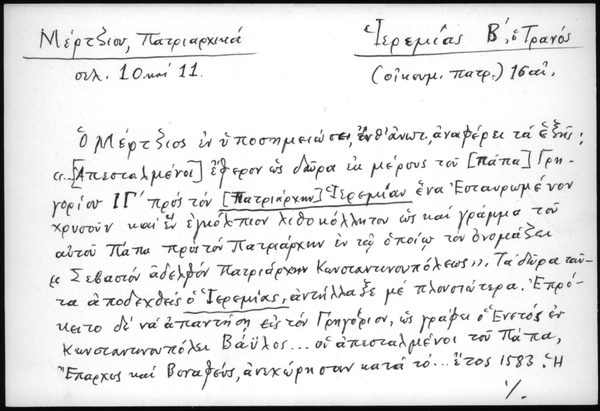 Μέρτζιου, Πατριαρχικά
σελ. 10 καί 11.
Ἱερεμίας Β΄, ὁ Τρανός
(οἰκουμ. πατρ.) 16 αἰ.
Ὁ Μέρτζιος ἐν ὑποσημειώσει, ἔνθ' ἀνωτ., ἀναφέρει τά ἑξῆς:
«..[Ἀπεσταλμένοι] ἔφερον ὡς δῶρα ἐκ μέρους τοῦ [πάπα] Γρη-
γορίου ΙΓ΄ πρός τόν [Πατριάρχην] Ἱερεμίαν ἕνα Ἐσταυρωμένον
χρυσοῦν καί ἕν ἐγκόλπιον λιθοκόλλητον ὡς καί γράμμα τοῦ
αὐτοῦ Πάπα πρός τόν Πατριάρχην ἐν τῷ ὁποίῳ τόν ὀνομάζει
"Σεβαστόν ἀδελφόν Πατριάρχην Κωνσταντινουπόλεως". Τά δῶρα ταῦ-
τα ἀποδεχθείς ὁ Ἱερεμίας, ἀντήλλαξε μέ πλουσιώτερα. Ἐπρό-
κειτο δέ νά ἀπαντήσῃ εἰς τόν Γρηγόριον, ὡς γράφει ὁ Ἐνετός ἐν
Κωνσταντινουπόλει Βάϋλος... οἱ ἀπεσταλμένοι τοῦ Πάπα,
Ἔπαρχος καί Βοναφεύς, ἀνεχώρησαν κατά τό... ἔτος 1583. Ἡ
./.